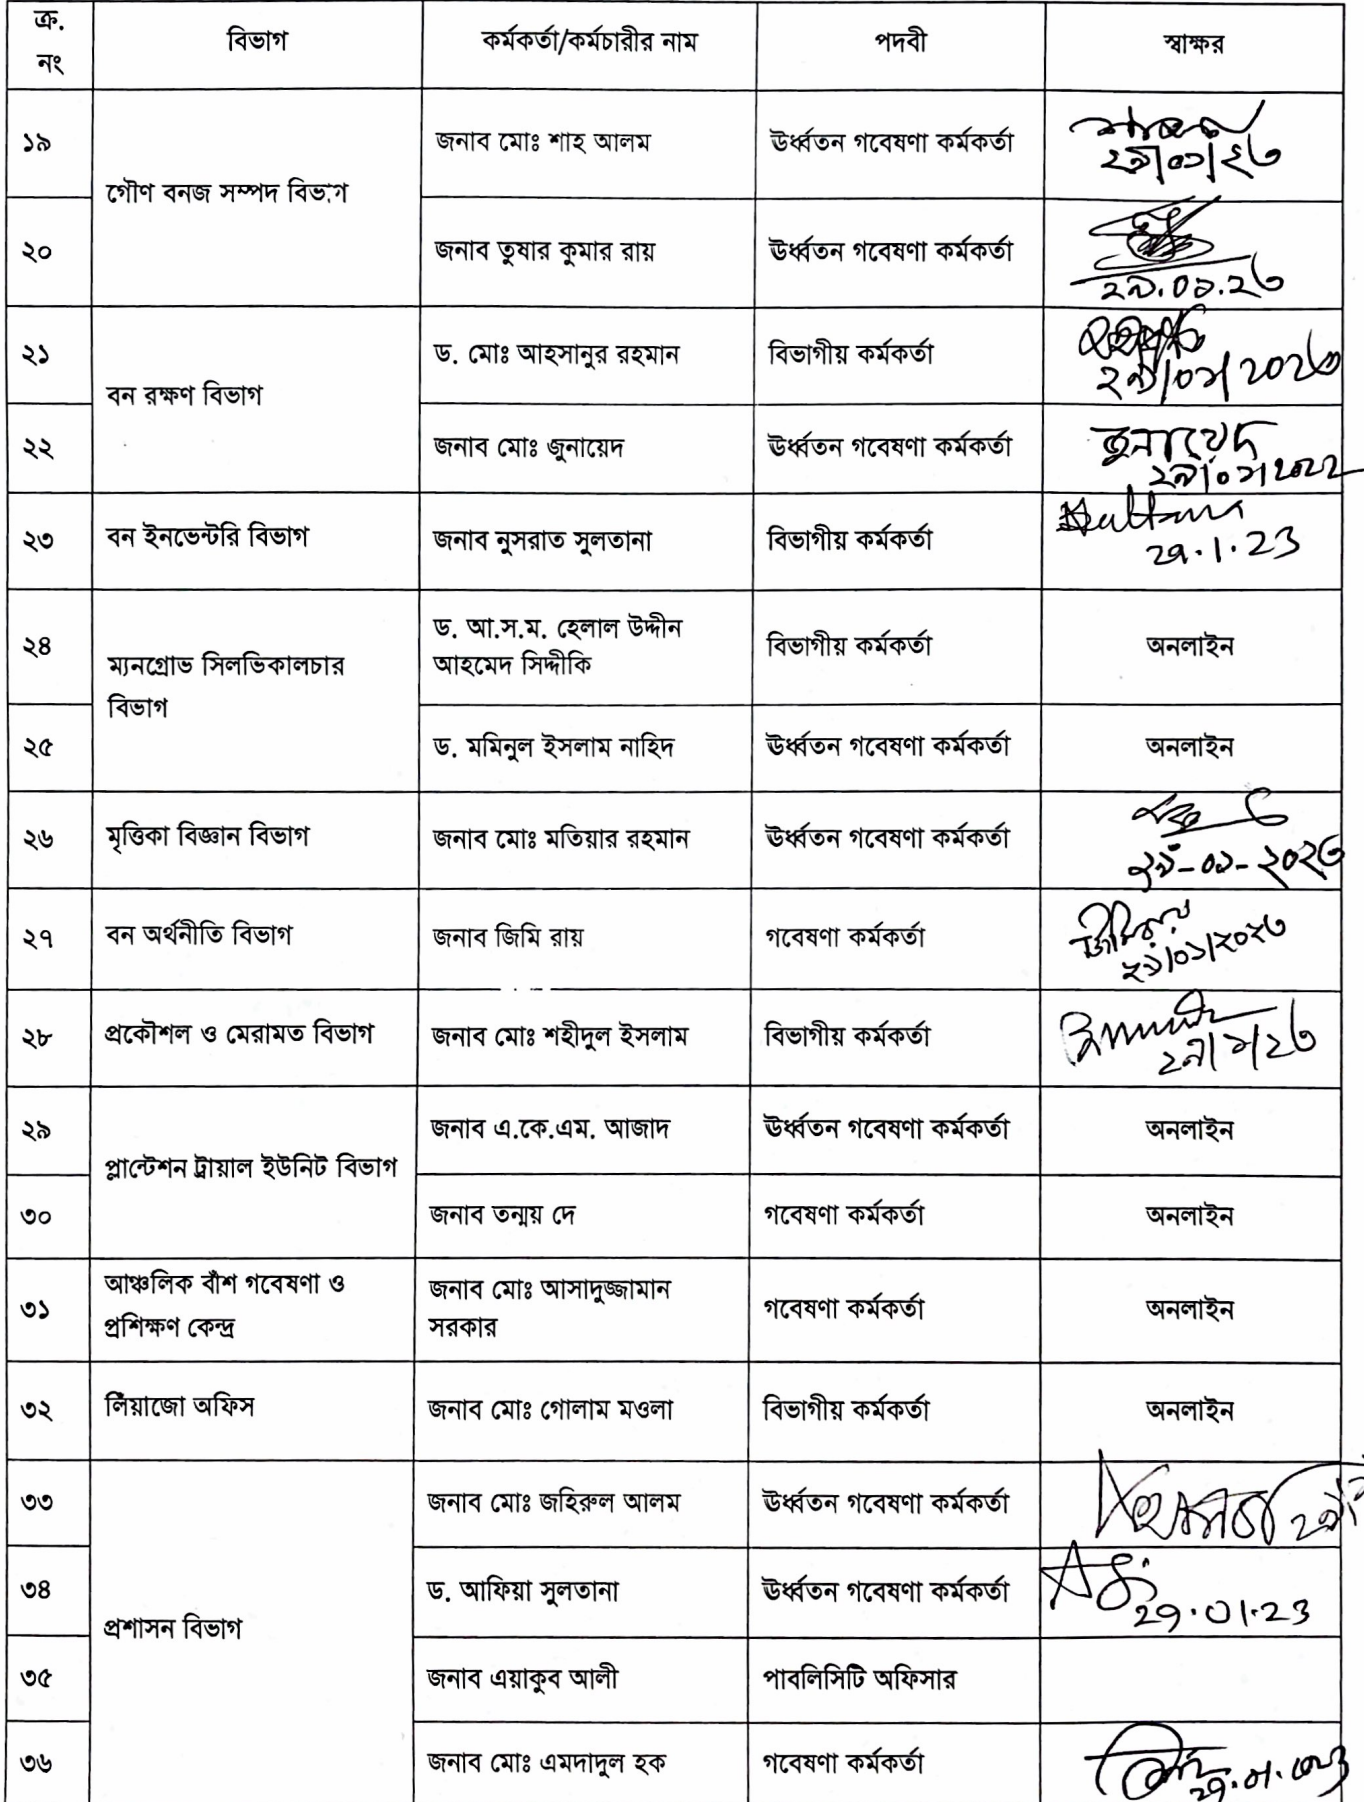 ক্র. নং | বিভাগ | কর্মকর্তা/কর্মচারীর নাম | পদবী | স্বাক্ষর
১৯ | গৌণ বনজ সম্পদ বিভাগ | জনাব মোঃ শাহ আলম | ঊর্ধ্বতন গবেষণা কর্মকর্তা | ২৯/০১/২৩
২০ | জনাব তুষার কুমার রায় | ঊর্ধ্বতন গবেষণা কর্মকর্তা | ২৯.০১.২৩
২১ | বন রক্ষণ বিভাগ | ড. মোঃ আহসানুর রহমান | বিভাগীয় কর্মকর্তা | ২৯/০১/২০২৩
২২ | জনাব মোঃ জুনায়েদ | ঊর্ধ্বতন গবেষণা কর্মকর্তা | জুনায়েদ
২৩ | বন ইনভেন্টরি বিভাগ | জনাব নুসরাত সুলতানা | বিভাগীয় কর্মকর্তা | Sultana 29.1.23
২৪ | ম্যনগ্রোভ সিলভিকালচার বিভাগ | ড. আ.স.ম. হেলাল উদ্দীন আহমেদ সিদ্দীকি | বিভাগীয় কর্মকর্তা | অনলাইন
২৫ | ড. মমিনুল ইসলাম নাহিদ | ঊর্ধ্বতন গবেষণা কর্মকর্তা | অনলাইন
২৬ | মৃত্তিকা বিজ্ঞান বিভাগ | জনাব মোঃ মতিয়ার রহমান | ঊর্ধ্বতন গবেষণা কর্মকর্তা | ২৯-০১-২০২৩
২৭ | বন অর্থনীতি বিভাগ | জনাব জিমি রায় | গবেষণা কর্মকর্তা | ২৯/০১/২০২৩
২৮ | প্রকৌশল ও মেরামত বিভাগ | জনাব মোঃ শহীদুল ইসলাম | বিভাগীয় কর্মকর্তা | ২৯/১/২৩
২৯ | প্লান্টেশন ট্রায়াল ইউনিট বিভাগ | জনাব এ.কে.এম. আজাদ | ঊর্ধ্বতন গবেষণা কর্মকর্তা | অনলাইন
৩০ | জনাব তন্ময় দে | গবেষণা কর্মকর্তা | অনলাইন
৩১ | আঞ্চলিক বাঁশ গবেষণা ও প্রশিক্ষণ কেন্দ্র | জনাব মোঃ আসাদুজ্জামান সরকার | গবেষণা কর্মকর্তা | অনলাইন
৩২ | লিঁয়াজো অফিস | জনাব মোঃ গোলাম মওলা | বিভাগীয় কর্মকর্তা | অনলাইন
৩৩ | প্রশাসন বিভাগ | জনাব মোঃ জহিরুল আলম | ঊর্ধ্বতন গবেষণা কর্মকর্তা
৩৪ | ড. আফিয়া সুলতানা | ঊর্ধ্বতন গবেষণা কর্মকর্তা | 29.01.23
৩৫ | জনাব এয়াকুব আলী | পাবলিসিটি অফিসার
৩৬ | জনাব মোঃ এমদাদুল হক | গবেষণা কর্মকর্তা